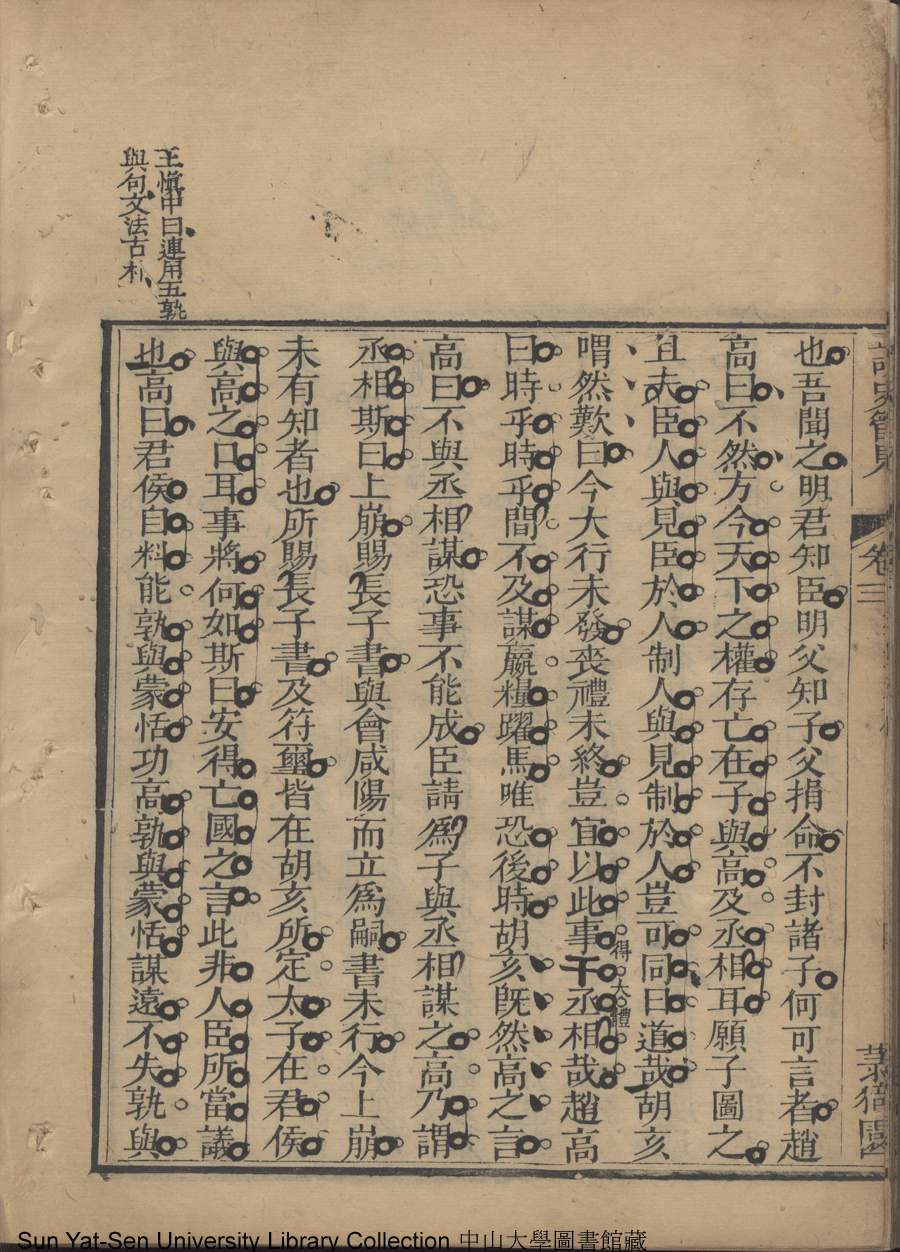 王慎中曰連用五孰
與句文法古朴
也吾聞之明君知臣明父知子父捐命不封諸子何可言者趙
高曰不然方今天下之權存亡在子與高及丞相耳願子圖之
且夫臣人與見臣於人制人與見制於人豈可同日道哉胡亥
喟然歎曰今大行未發喪禮未終豈宜以此事干丞相哉趙高
得大體
曰時乎時乎間不及謀嬴糧躍馬唯恐後時胡亥旣然高之言
高曰不與丞相謀恐事不能成臣請爲子與丞相謀之高乃謂
丞相斯曰上崩賜長子書與會咸陽而立爲嗣書未行今上崩
未有知者也所賜長子書及符璽皆在胡亥所定太子在君侯
與高之口耳事將何如斯曰安得亡國之言此非人臣所當議
也高曰君侯自料能孰與蒙恬功高孰與蒙恬謀遠不失孰與
卷三
Sun Yat-Sen University Library Collection 中山大學圖書館藏